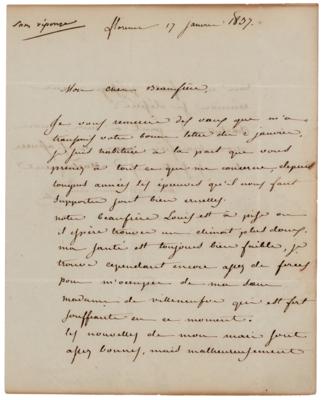 Sans réponse
florence 17 janvier 1837.
Mon cher Beaufrère,
Je vous remercie des vœux que m'a
votre bonne lettre du 2 janvier,
je suis habituée à la part que vous
prenez à tout ce qui me concerne, depuis
longues années les épreuves qu'il nous faut
supporter sont bien cruelles.
notre beaufrère Louis est à pise où
il espère trouver un climat plus doux.
ma santé est toujours bien faible, je
trouve cependant encore assez de forces
pour m'occuper de ma sœur
madame de villeneufve qui est fort
souffrante en ce moment.
les nouvelles de mon mari sont
assez bonnes, mais malheureusement